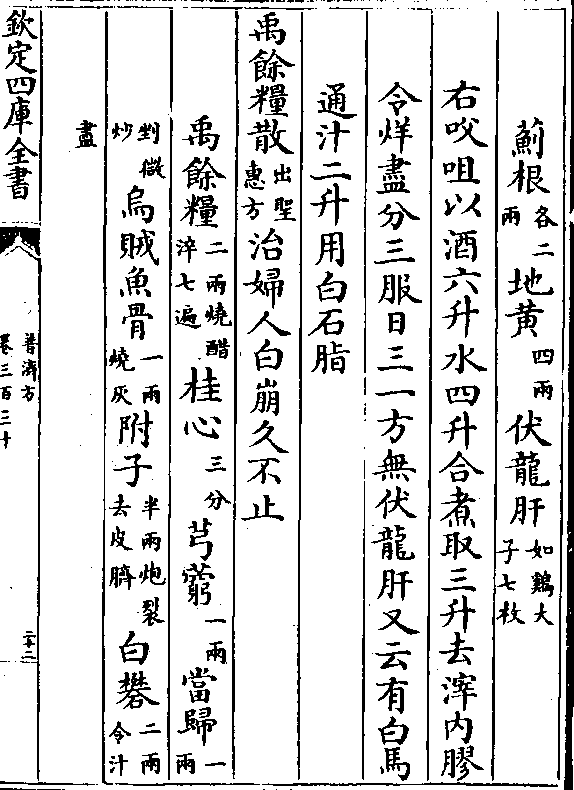 薊根各二兩地黄四兩伏龍肝如鷄大子七枚
右㕮咀以酒六升水四升合煮取三升去滓内膠
令烊盡分三服日三一方無伏龍肝又云有白馬
通汁二升用白石脂
禹餘糧散出聖惠方治婦人白崩久不止
禹餘糧二兩燒醋淬七遍桂心三分芎藭一兩當歸一兩
剉微炒烏賊魚骨一兩燒灰附子半兩炮裂去皮臍白礬二兩令汁
盡
欽定四庫全書
普濟方
卷三百三十
二十二